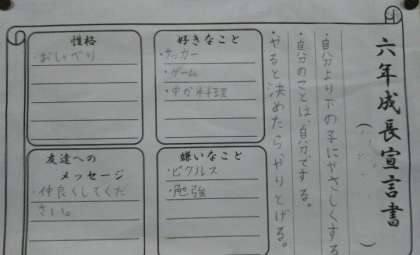 六年成長宣言書
・自分より下の子にやさしくする
・自分のことは、自分でする。
・やると決めたらやりとげる。
好きなこと
・サッカー
・ゲーム
・中か料理
性格
・おしゃべり
嫌いなこと
・ピクルス
・勉強
友達への
メッセージ
・仲良くしてくだ
さい。